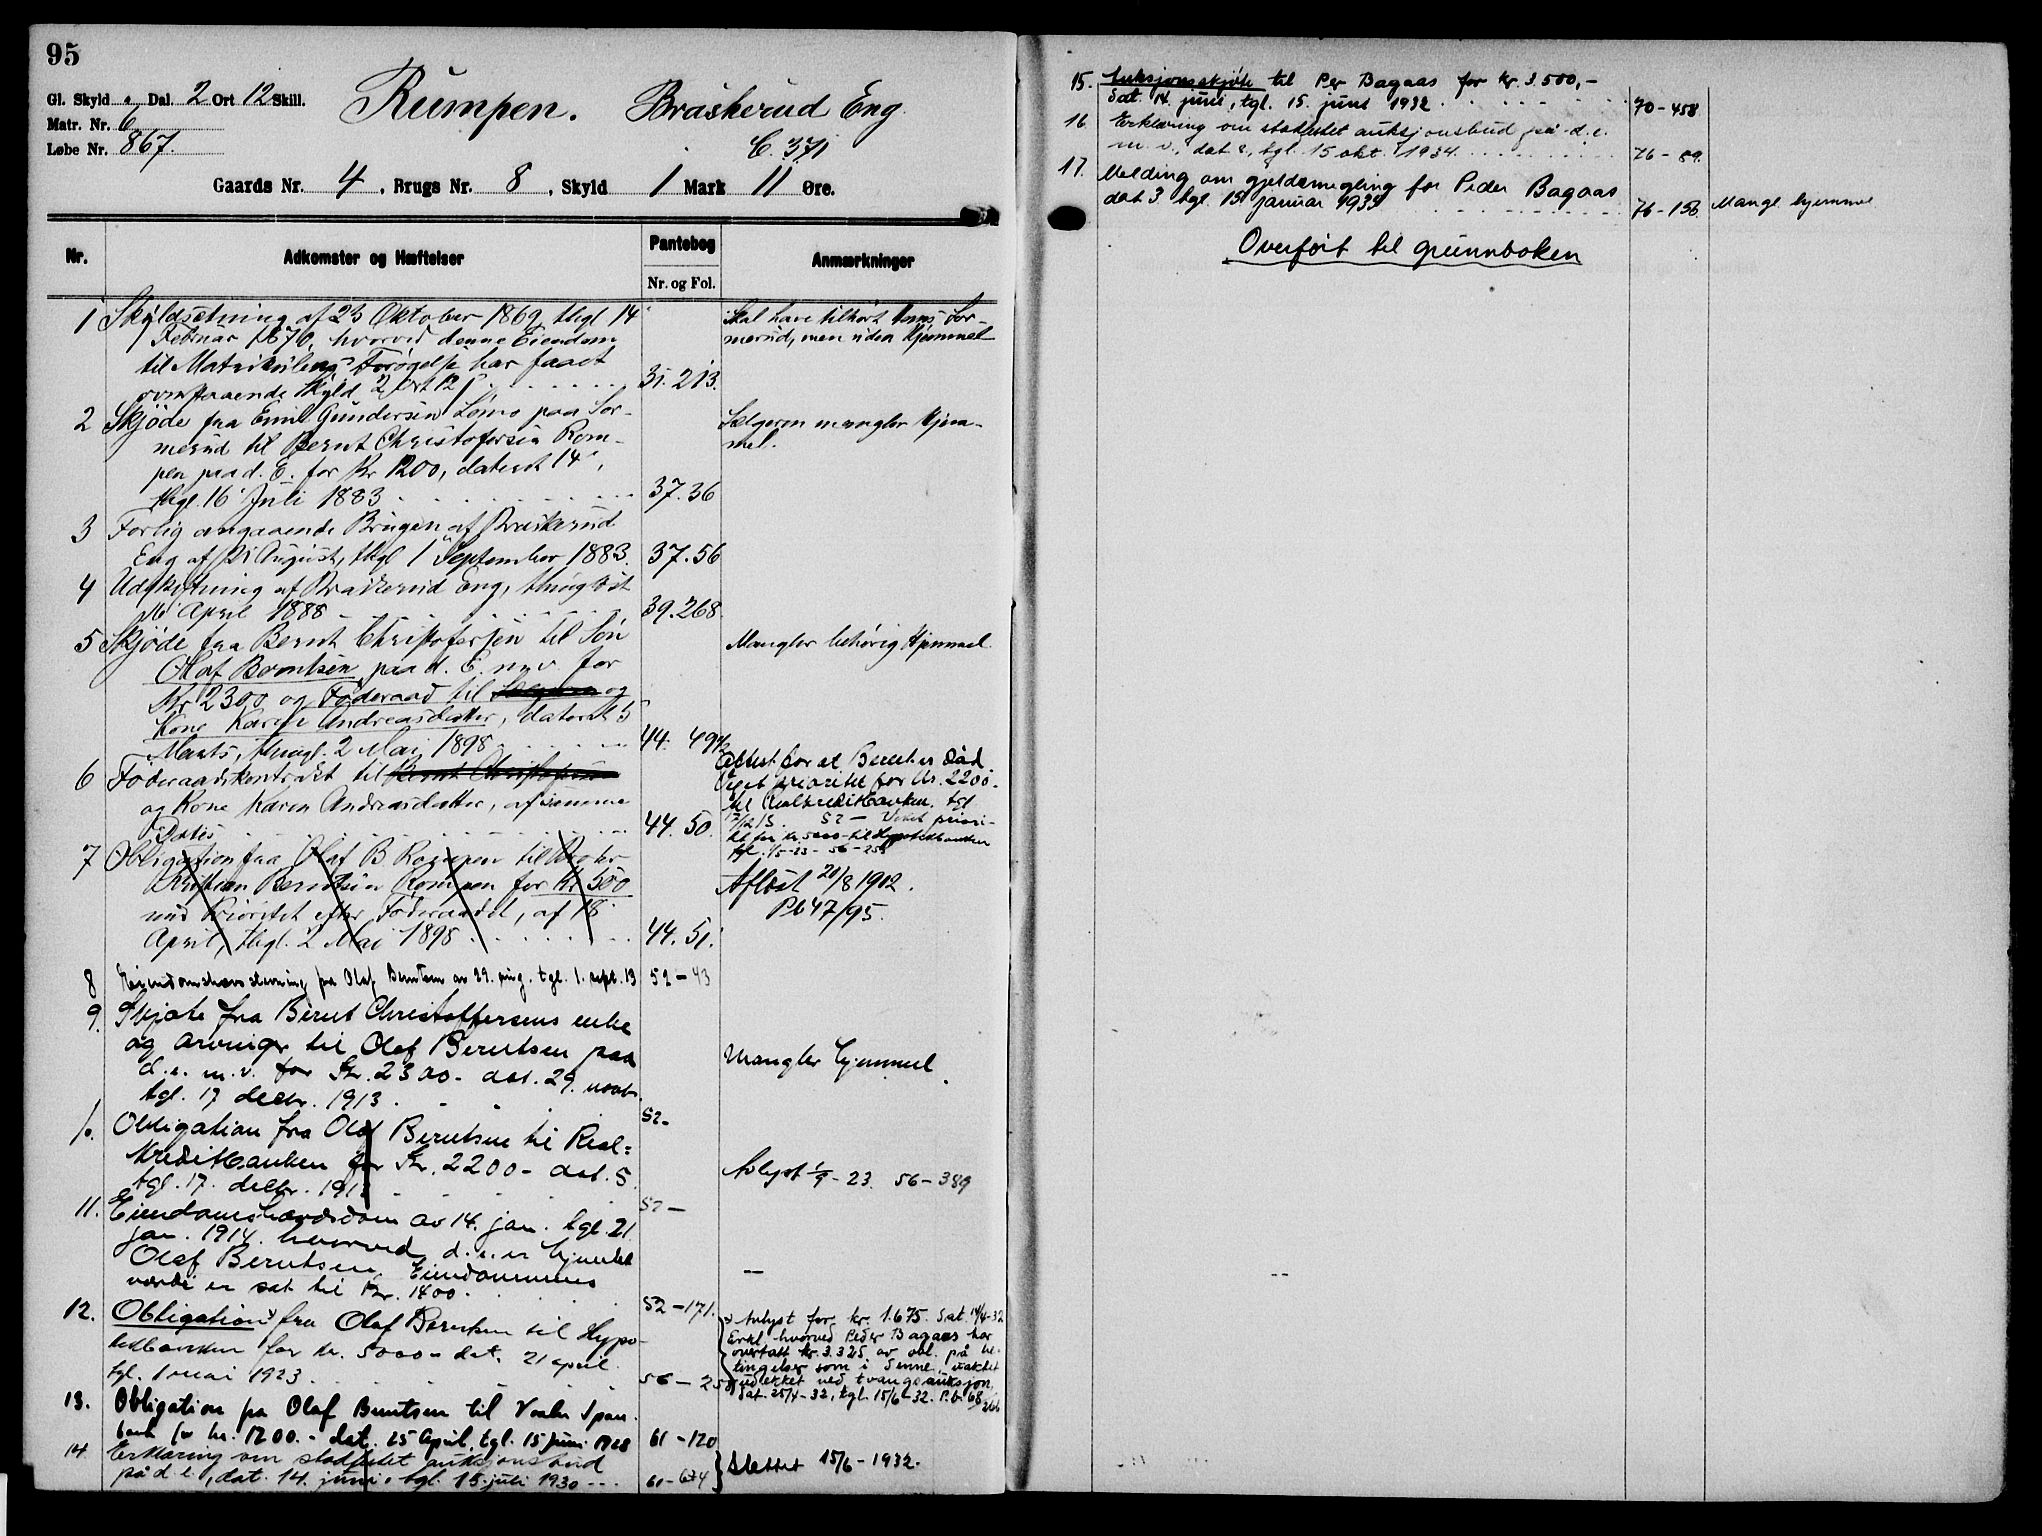 95
Gl. Skyld „ Dal. 2 Ort 12 Skill.
Rumpen. Braskerud Eng
Matr. Nr. 6
Løbe Nr. 867.
C. 371
Gaards Nr. 4, Brugs Nr. 8, Skyld 1 Mark 11 Øre.
Nr. Adkomster og Hæftelser Pantebog Nr. og Fol. Anmærkninger
1 Skyldsetning af 23 Oktober 1869, thgl 14
Februar 1870, hvorved denne Eiendom
til Matrikulens Forøgelse har faaet
ovenstaaende Skyld 2 Ort 12 ſ 31. 213.
Skal have tilhørt Sor-
merud, men uden Hjemmel
2 Skjøde fra Emil Gundersen Lomo paa Sor-
merud til Bernt Christofersen Rom-
pen paa d. E. for Kr 1200, dateret 14,
thgl. 16 Juli 1883 37. 36
Sælgeren mangler Hjem-
mel.
3 Forlig angaaende Brugen af Braskerud
Eng af 21 August, thgl 1 September 1883. 37. 56
4 Udskiftning af Braskerud Eng, thinglæst
April 1888 39. 268
5 Skjøde fra Bernt Christofersen til Søn
Olaf Berntsen paa d. E. m. v. for
Kr 2300 og Føderaad til Sælgeren og
Kone Karen Andreasdatter, dateret 5
Marts, thingl. 2 Mai 1898 44. 49
Mangler behørig Hjemmel.
6 Føderaadskontrakt til Bernt Christofersen
og Kone Karen Andreasdatter, af samme
Dates 44. 50.
Attest for at Bernt er død
Veget prioritet for kr. 2200.-
til Realkreditbanken. tgl
17/12 13. 52 — Veket priori-
tet for kr 5000 til Hypotekbanken
tgl. 1/5-23- 56-258
7 Obligation fra Olaf B Rompen til Broder
Kristian Berntsen Rompen for Kr 500
med Prioritet efter Føderaadet, af 18
April, thgl. 2 Mai 1898 44. 51.
Afløst 20/8 1902.
Pb 47/95.
8 Eiendomshævdsstevning fra Olaf Berntsen av 29. aug. tgl. 1. sept. 13 52-43
9. Skjøte fra Bernt Christoffersens enke
og arvinger til Olaf Berntsen paa
d. e. m. v. for Kr. 2300- dat. 29. novbr.
tgl. 17 decbr. 1913. 52-
Mangler hjemmel.
10. Obligation fra Olaf Berntsen til Real-
kreditbanken for Kr. 2200- dat. 5
tgl. 17. decbr. 1913 52-
Avlyst 1/9-23. 56-389
11. Eiendomshævdsdom av 14. jan. tgl. 21
jan. 1914. hvorved d. e. er hjemlet
Olaf Berntsen. Eiendommens
værdi er sat til Kr. 1400. 52-171.
—
12. Obligation x fra Olaf Berntsen til Hypo-
tekbanken for kr. 5000- dat. 21 april
tgl. 1 mai 1923 56-258
x Avlyst for kr. 1675. Dat. 14/4-32
Erkl. hvorved Peder Bagaas har
overtatt kr. 3.325 av obl. på be-
tingelser som i denne, vaktet
udekket ved tvangsauksjon,
dat. 25/4-32, tgl. 15/6-32. P.b. 68/266
13. Obligation fra Olaf Berntsen til Vaaler Spare-
bank for kr. 1200.- dat. 25 April, tgl. 15 juni 1928 61-120
14. Erklæring om stadfestet auksjonsbud
på d. e., dat. 14. juni, tgl. 15. juli 1930 61-674
Slettet 15/6-1932.
15. Auksjonsskjøte til Per Bagaas for kr. 3.500,-
Dat. 14. juni, tgl. 15. juni 1932 70-458
16. Erklæring om stadfestet auksjonsbud på d. e.
m. v., dat. 2, tgl. 15 okt. 1934 76-89
17. Melding om gjeldsmegling for Peder Bagaas
dat 3. tgl. 15 januar 1935 76-156
Mangl. hjemmel
Overført til grunnboken